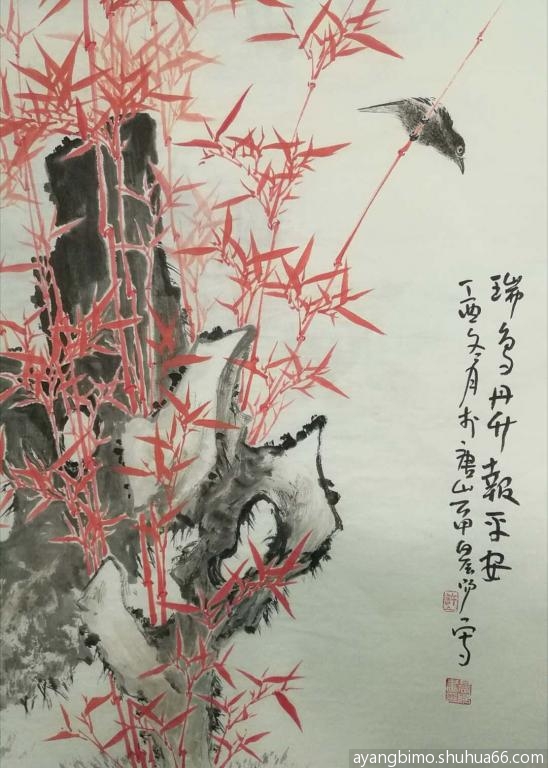 瑞鸟丹竹報平安
丁酉冬月於唐山 写
ayangbimo.shuhua66.com